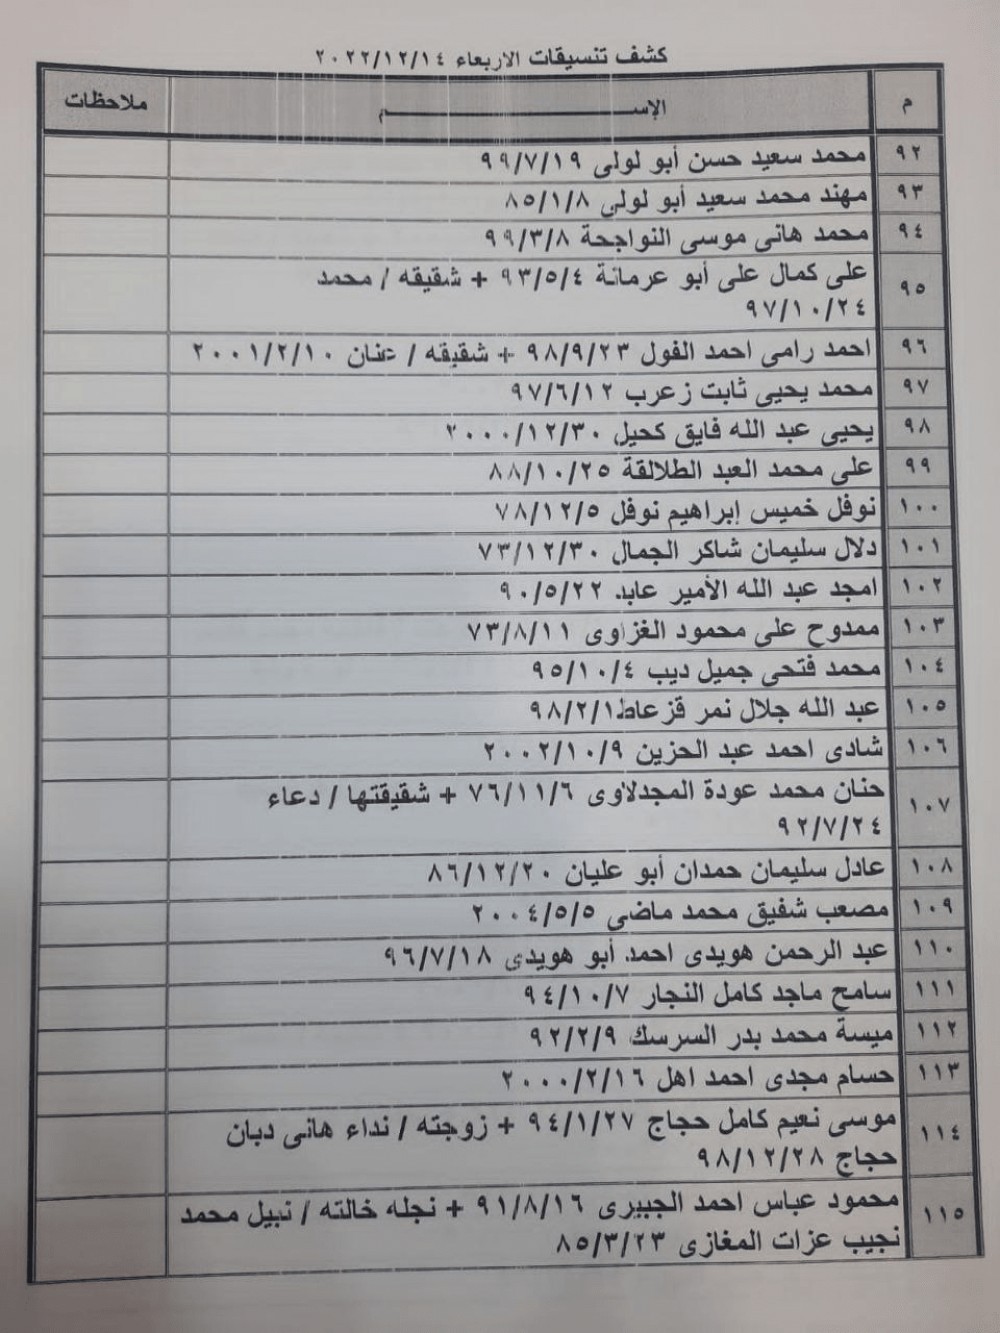 كشف تنسيقات الاربعاء ٢٠٢٢/١٢/١٤
م الإســـــــــــــــــــم ملاحظات
٩٢ محمد سعيد حسن أبو لولى ٩٩/٧/١٩
٩٣ مهند محمد سعيد أبو لولى ٨٥/١/٨
٩٤ محمد هانى موسى النواجحة ٩٩/٣/٨
٩٥ على كمال على أبو عرمانة ٩٣/٥/٤ + شقيقه / محمد
٩٧/١٠/٢٤
٩٦ احمد رامى احمد الفول ٩٨/٩/٢٣ + شقيقه / عنان ٢٠٠١/٢/١٠
٩٧ محمد يحيى ثابت زعرب ٩٧/٦/١٢
٩٨ يحيى عبد الله فايق كحيل ٢٠٠٠/١٢/٣٠
٩٩ على محمد العبد الطلالقة ٨٨/١٠/٢٥
١٠٠ نوفل خميس إبراهيم نوفل ٧٨/١٢/٥
١٠١ دلال سليمان شاكر الجمال ٧٣/١٢/٣٠
١٠٢ امجد عبد الله الأمير عابد ٩٠/٥/٢٢
١٠٣ ممدوح على محمود الغزاوى ٧٣/٨/١١
١٠٤ محمد فتحى جميل ديب ٩٥/١٠/٤
١٠٥ عبد الله جلال نمر قزعاط ٩٨/٢/١
١٠٦ شادى احمد عبد الحزين ٢٠٠٢/١٠/٩
١٠٧ حنان محمد عودة المجدلاوى ٧٦/١١/٦ + شقيقتها / دعاء
٩٢/٧/٢٤
١٠٨ عادل سليمان حمدان أبو عليان ٨٦/١٢/٢٠
١٠٩ مصعب شفيق محمد ماضى ٢٠٠٤/٥/٥
١١٠ عبد الرحمن هويدى احمد أبو هويدى ٩٦/٧/١٨
١١١ سامح ماجد كامل النجار ٩٤/١٠/٧
١١٢ ميسة محمد بدر السرسك ٩٢/٢/٩
١١٣ حسام مجدى احمد اهل ٢٠٠٠/٢/١٦
١١٤ موسى نعيم كامل حجاج ٩٤/١/٢٧ + زوجته / نداء هانى دبان
حجاج ٩٨/١٢/٢٨
١١٥ محمود عباس احمد الجبيرى ٩١/٨/١٦ + نجله خالته / نبيل محمد
نجيب عزات المغازى ٨٥/٣/٢٣